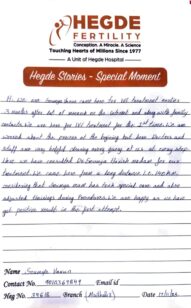 HEGDE
FERTILITY
Conception. A Miracle. A Science
Touching Hearts of Millions Since 1977
A Unit of Hegde Hospital
Hegde Stories - Special Moment
Hi, We are came here for IUI treatment
3 months after lot of research on the internet and along with family
We are here for IUI treatment for the 2nd time. We are
worried about the process at the beginning but here Doctors and
staff are very helpful during every query of us at every step.
Here we have consulted Dr Sowmya madam for our
treatment. We came here from a long distance i.e. 140 km.
considering that Sowmya mam has took special care and also
adjusted timings during procedures. We are happy as we have
got positive result in the first attempt.
Name
Contact No. Email id
Reg No. Branch Date